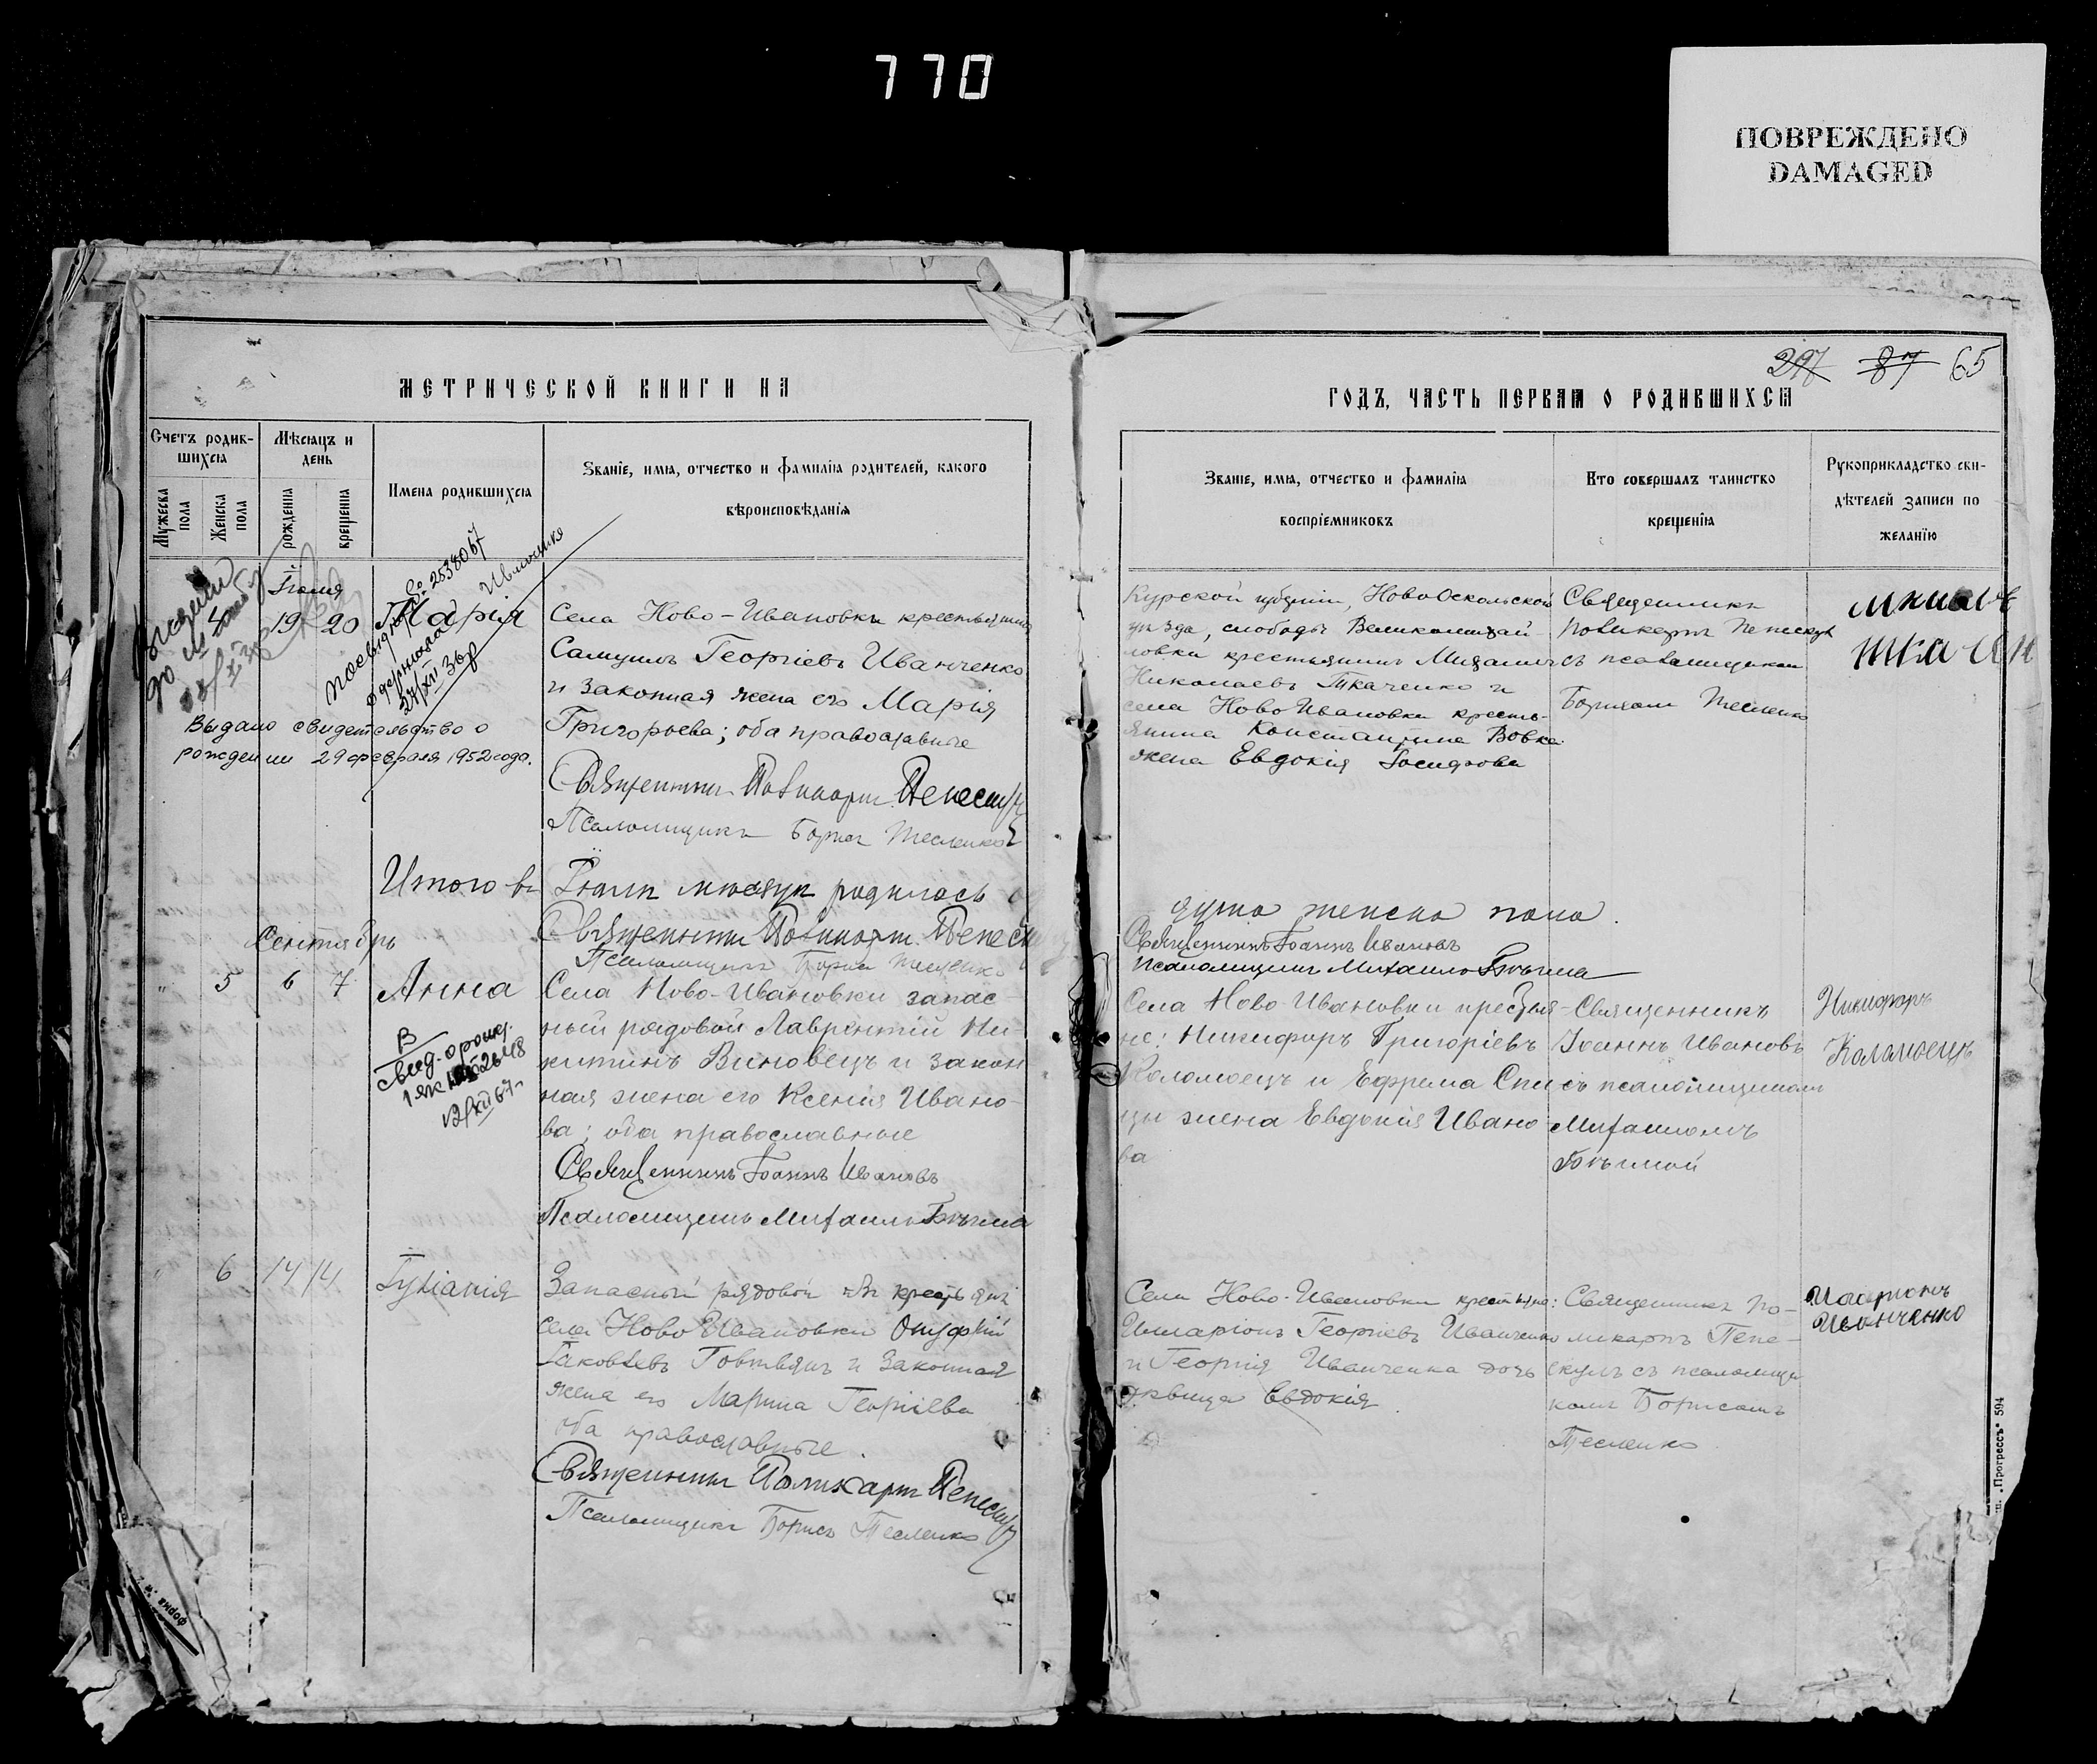 770
ПОВРЕЖДЕНО
DAMAGED
МЕТРИЧЕСКОЙ КНИГИ НА
Счетъ родив-
шихся
Мѣсяцъ и
день
Имена родившихся
Званіе, имя, отчество и фамилія родителей, какого
вѣроисповѣданія
Мужеска
пола
Женска
пола
рожденія
крещенія
Іюля
4 19 20 Марія
2538067
27/XII 36 р
Выдано свидетельство о
рождении 29 февраля 1952 года.
Села Ново-Ивановки крестьянинъ
Самуилъ Георгіевъ Иванченко
и законная жена его Марія
Григорьева; оба православные
Священникъ Поликарпъ Пепескулъ
Псаломщикъ Борисъ Тесленко
Итого въ Іюлѣ мѣсяцѣ родилась
Священникъ Поликарпъ
Псаломщикъ Борисъ Тесленко
Сентябрь
" 5 6 7 Анна
Села Ново-Ивановки запас-
ный рядовой Лаврентій Ни-
китинъ Виновецъ и закон
ная жена его Ксенія Ивано-
ва; оба православные
Священникъ Іоаннъ Ивановъ
Псаломщикъ Михаилъ
" 6 14 14 Іуліанія
Запасный рядовой изъ крестьянъ
села Ново Ивановки Онуфрій
Іаковлевъ Говтвянъ и законная
жена его Марина Георгіева
оба православные.
Священникъ Поликарпъ Пепескулъ
Псаломщикъ Борисъ Тесленко
297 87 65
ГОДЪ, ЧАСТЬ ПЕРВАЯ О РОДИВШИХСЯ
Званіе, имя, отчество и фамилія
воспріемниковъ
Кто совершалъ таинство
крещенія
Рукоприкладство сви-
дѣтелей записи по
желанію
Курской губерніи, НовоОскольской
уѣзда, слободы Великомихай-
ловки крестьянинъ Михаилъ
Николаевъ Ткаченко и
села Ново Ивановки кресть-
янина Константина Вовка
жена Евдокія Іосифова
Священникъ
Поликарпъ Пепескулъ
съ псаломщикомъ
Борисомъ Тесленко
душа женска пола.
Священникъ Іоаннъ Ивановъ
Псаломщикъ Михаилъ
Села Ново-Ивановки крестья-
не: Никифоръ Григоріевъ
Коломоецъ и Ефрема Спи
цы жена Евдокія Ивано
ва
Священникъ
Іоаннъ Ивановъ
съ псаломщикомъ
Михаиломъ
Никифоръ
Коломоецъ
Села Ново-Ивановки крестьяне:
Илларіонъ Георгіевъ Иванченко
и Георгія Иванченка дочь
дѣвица Евдокія
Священникъ По-
ликарпъ Пепе-
скулъ съ псаломщи
комъ Борисомъ
Тесленко
Иларионъ
Иванченко
„Прогрессъ" 594
форма